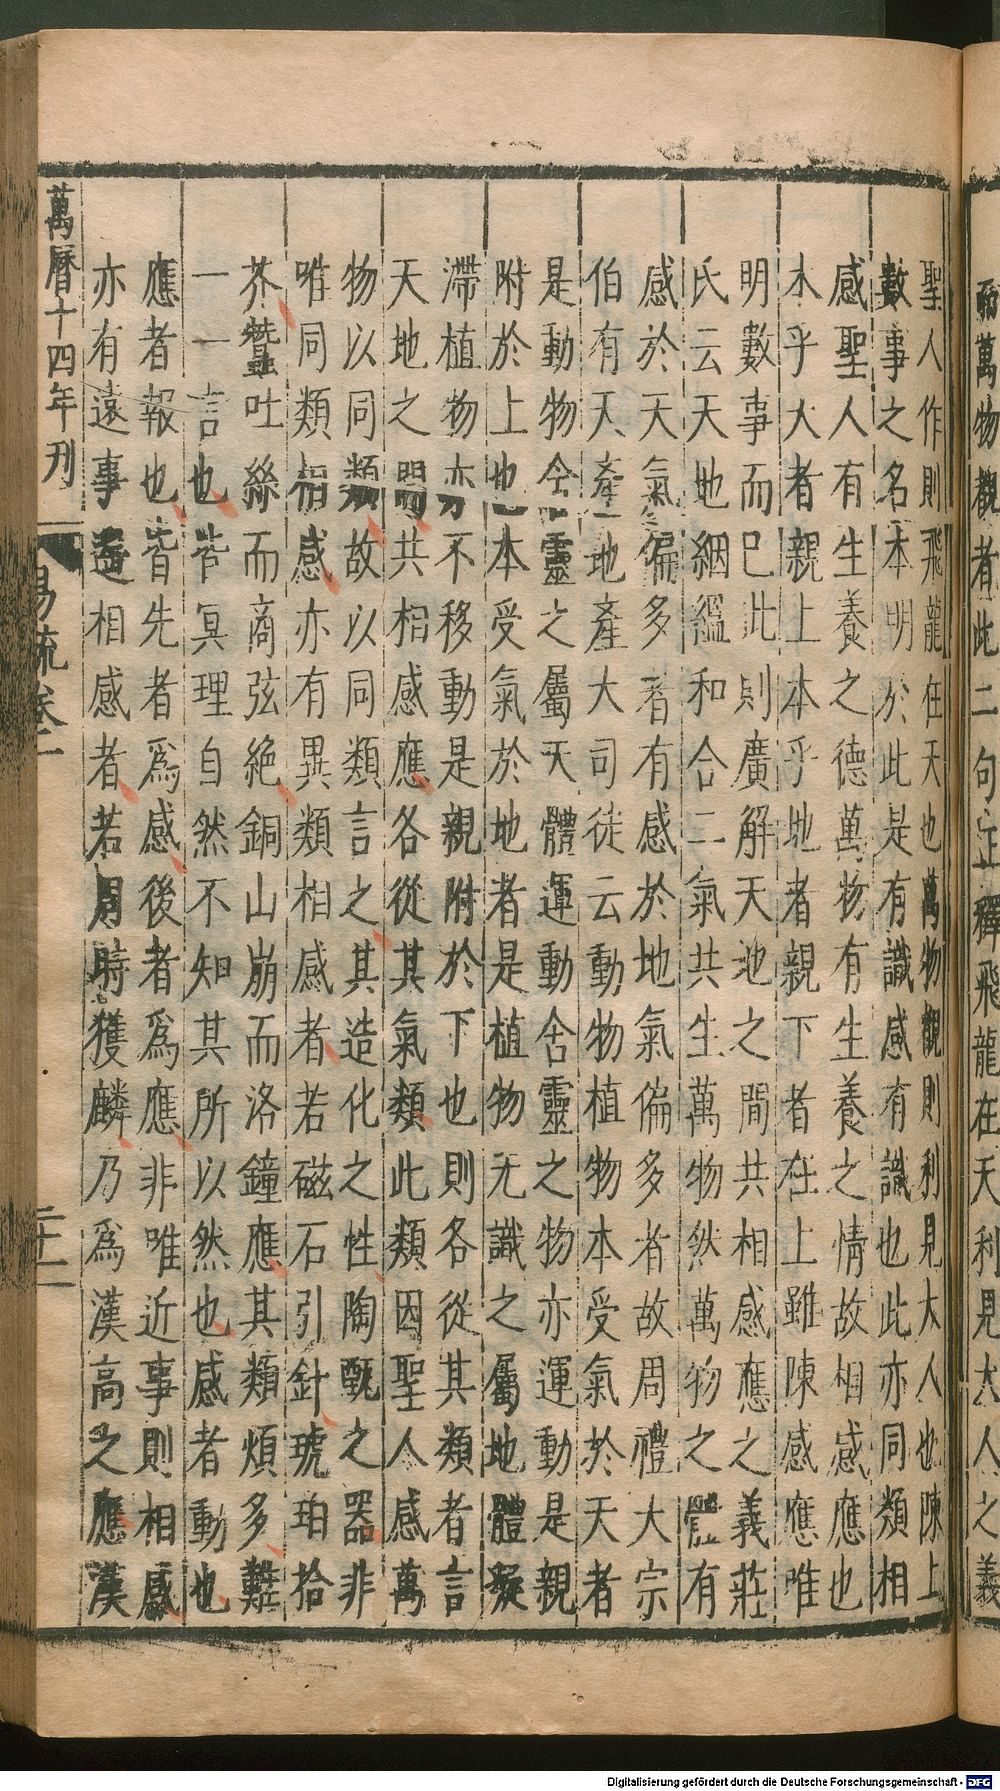 爾萬物覩者此二句正釋飛龍在天利見大人之義
聖人作則飛龍在天也萬物覩則利見大人也陳上
數事之名本明於此是有識感有識也此亦同類相
感聖人有生養之德萬物有生養之情故相感應也
本乎天者親上本乎地者親下者在上雖陳感應唯
明數事而已此則廣解天地之間共相感應之義莊
氏云天地絪縕和合二氣共生萬物然萬物之體有
感於天氣偏多者有感於地氣偏多者故周禮大宗
伯有天產地產大司徒云動物植物本受氣於天者
是動物含靈之屬天體運動含靈之物亦運動是親
附於上也本受氣於地者是植物无識之屬地體凝
滯植物亦不移動是親附於下也則各從其類者言
天地之間共相感應各從其氣類此類因聖人感萬
物以同類故以同類言之其造化之性陶甄之器非
唯同類相感亦有異類相感者若磁石引針琥珀拾
芥蠶吐絲而商弦絶銅山崩而洛鐘應其類煩多難
一一言也皆冥理自然不知其所以然也感者動也
應者報也皆先者爲感後者爲應非唯近事則相感
亦有遠事遥相感者若周時獲麟乃爲漢高之應漢
萬曆十四年刊
易疏卷一
二十二
Digitalisierung gefördert durch die Deutsche Forschungsgemeinschaft - DFG